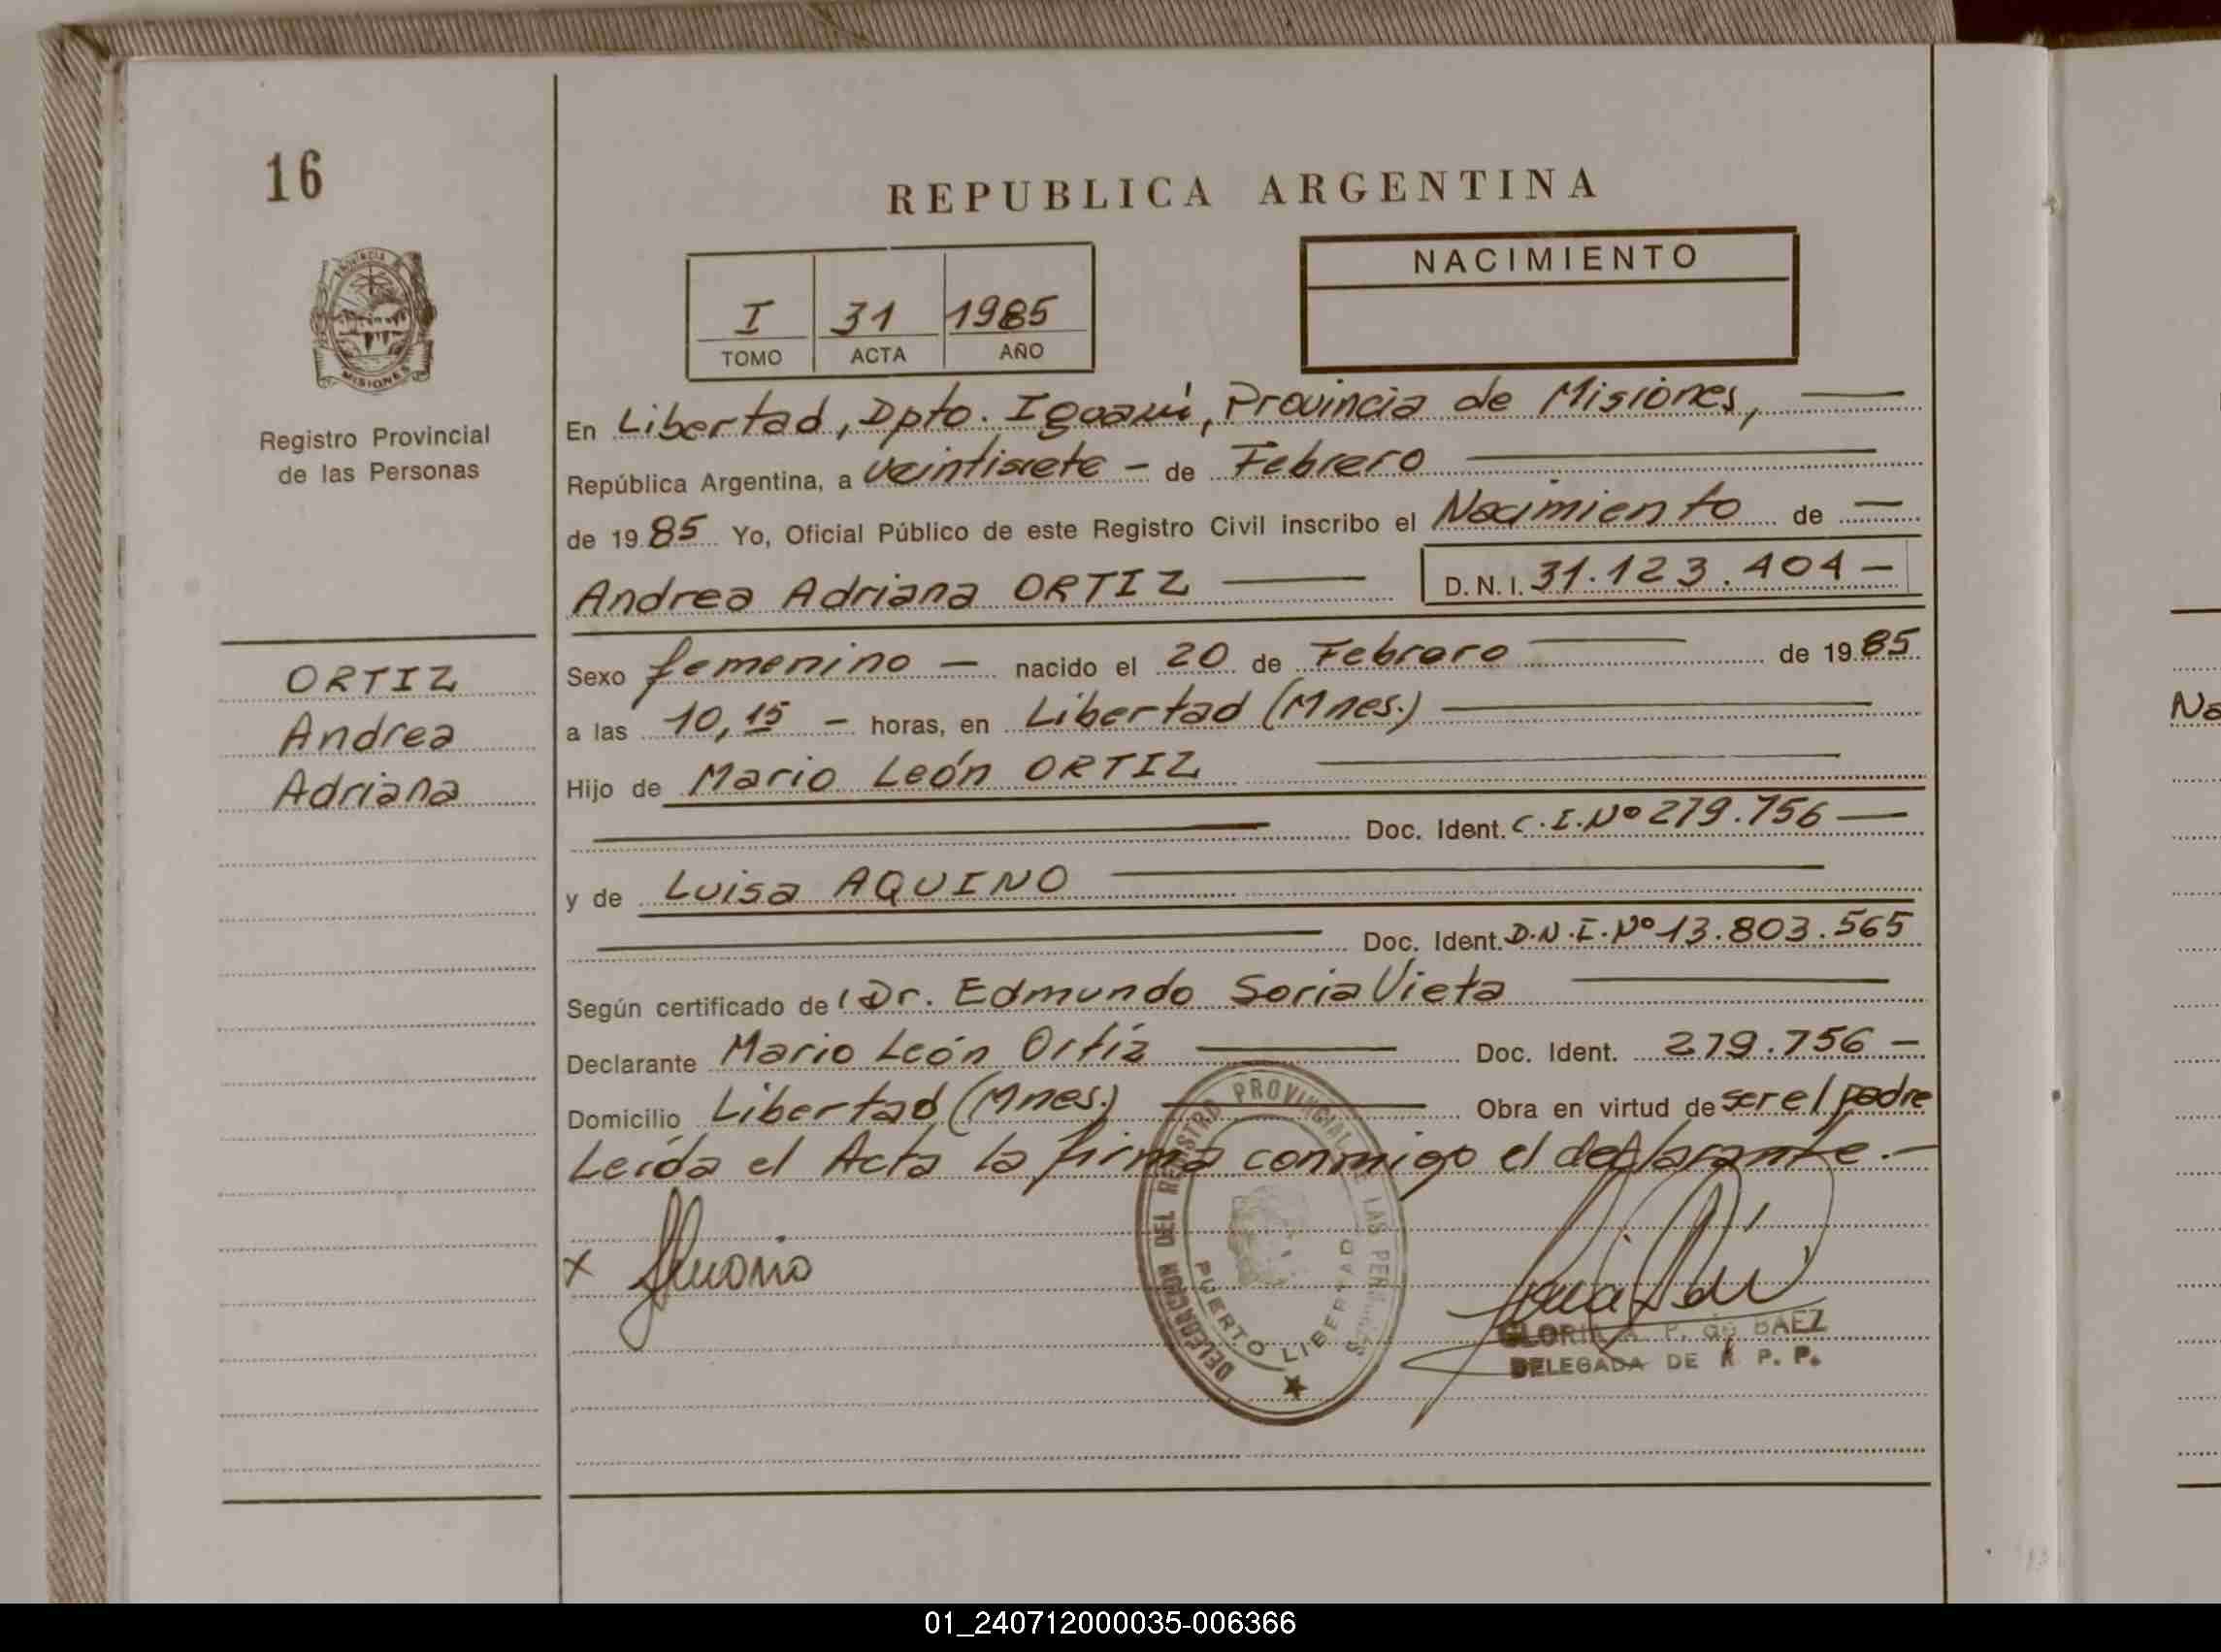 16
REPUBLICA ARGENTINA
PROVINCIA DE
MISIONES
Registro Provincial
de las Personas
I 31 1985
TOMO ACTA AÑO
NACIMIENTO
En Libertad, Dpto. Iguazú, Provincia de Misiones,
República Argentina, a veintisiete - de Febrero
de 1985 Yo, Oficial Público de este Registro Civil inscribo el Nacimiento de
Andrea Adriana ORTIZ D.N.I. 31.123.404-
ORTIZ
Andrea
Adriana
Sexo femenino - nacido el 20 de Febrero de 1985
a las 10,15 - horas, en Libertad (Mnes.)
Hijo de Mario León ORTIZ
Doc. Ident. C.I.Nº 279.756
y de Luisa AQUINO
Doc. Ident. D.N.I. Nº 13.803.565
Según certificado del Dr. Edmundo Soria Vieta
Declarante Mario León Ortíz Doc. Ident. 279.756-
Domicilio Libertad (Mnes.) Obra en virtud de ser el padre
Leída el Acta la firma conmigo el declarante.-
DELEGACION DEL REGISTRO PROVINCIAL DE LAS PERSONAS
PUERTO LIBERTAD
x
GLORIA P. de BAEZ
DELEGADA DE R P. P.
No
01_240712000035-006366